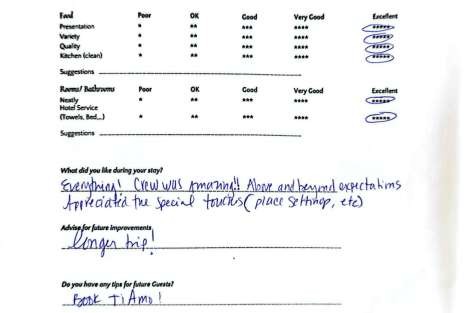 Food Poor OK Good Very Good Excellent
Presentation * ** *** **** *****
Variety * ** *** **** *****
Quality * ** *** **** *****
Kitchen (clean) * ** *** **** *****
Suggestions
Rooms/ Bathrooms Poor OK Good Very Good Excellent
Neatly * ** *** **** *****
Hotel Service
(Towels, Bed,..) * ** *** **** *****
Suggestions
What did you like during your stay?
Everything! Crew was Amazing!! Above and beyond expectations
Appreciated the special touches (place settings, etc)
Advise for future improvements
longer trip!
Do you have any tips for future Guests?
Book Ti Amo!